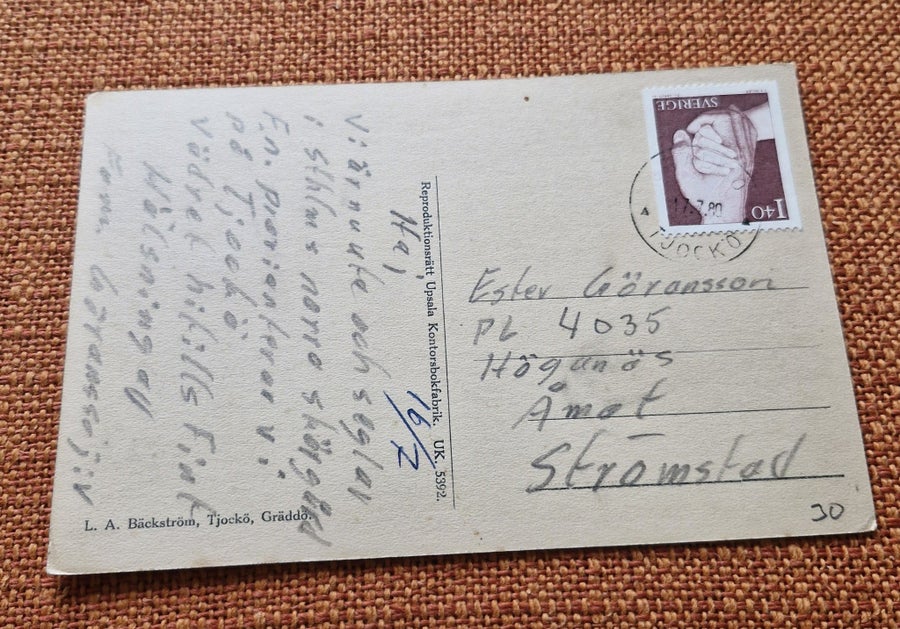 Hej,
Vi är nu ute och seglar
i Sthlms norra skärgård
F.n. provianterar vi
på Tjockö.
Vädret hitills fint
Hälsningar
fam Göransson
16/7
Reproduktionsrätt Upsala Kontorsbokfabrik. UK. 5392.
L. A. Bäckström, Tjockö, Gräddö.
SVERIGE
1 40
17.7.80
TJOCKÖ
Ester Göransson
PL 4035
Höganäs
Åmot
Strömstad
30